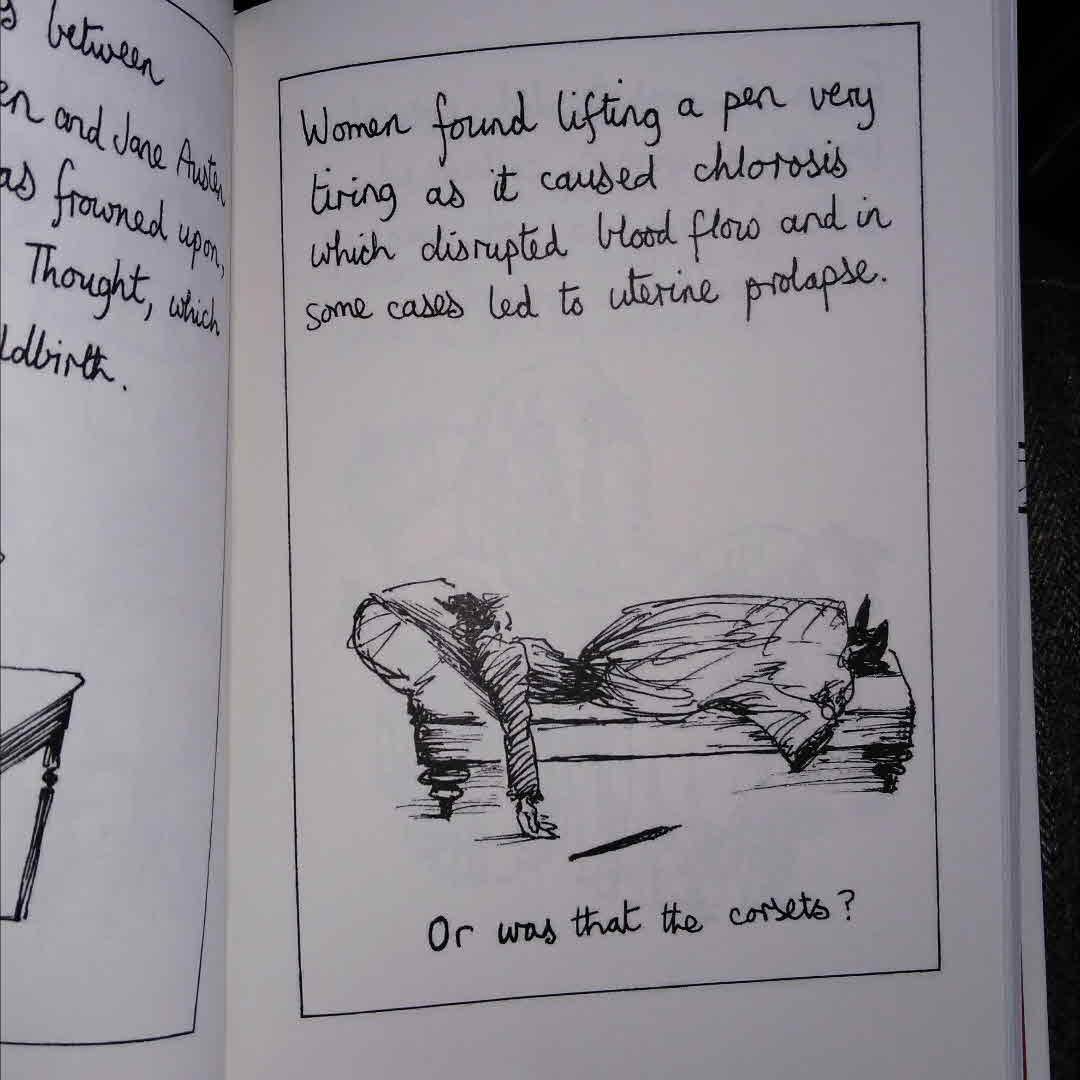 between
and Jane Austen
frowned upon,
Thought, which
Women found lifting a pen very
tiring as it caused chlorosis
which disrupted blood flow and in
some cases led to uterine prolapse.
Or was that the corsets?